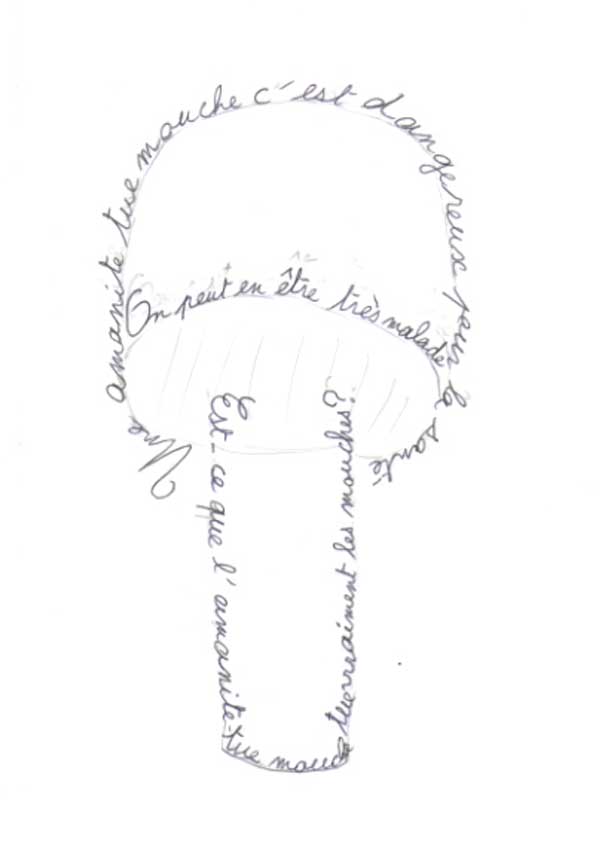 Une amanite tue mouche c'est dangereux pour la santé
On peut en être très malade
Est-ce que l'amanite-tue mouche tue vraiment les mouches?